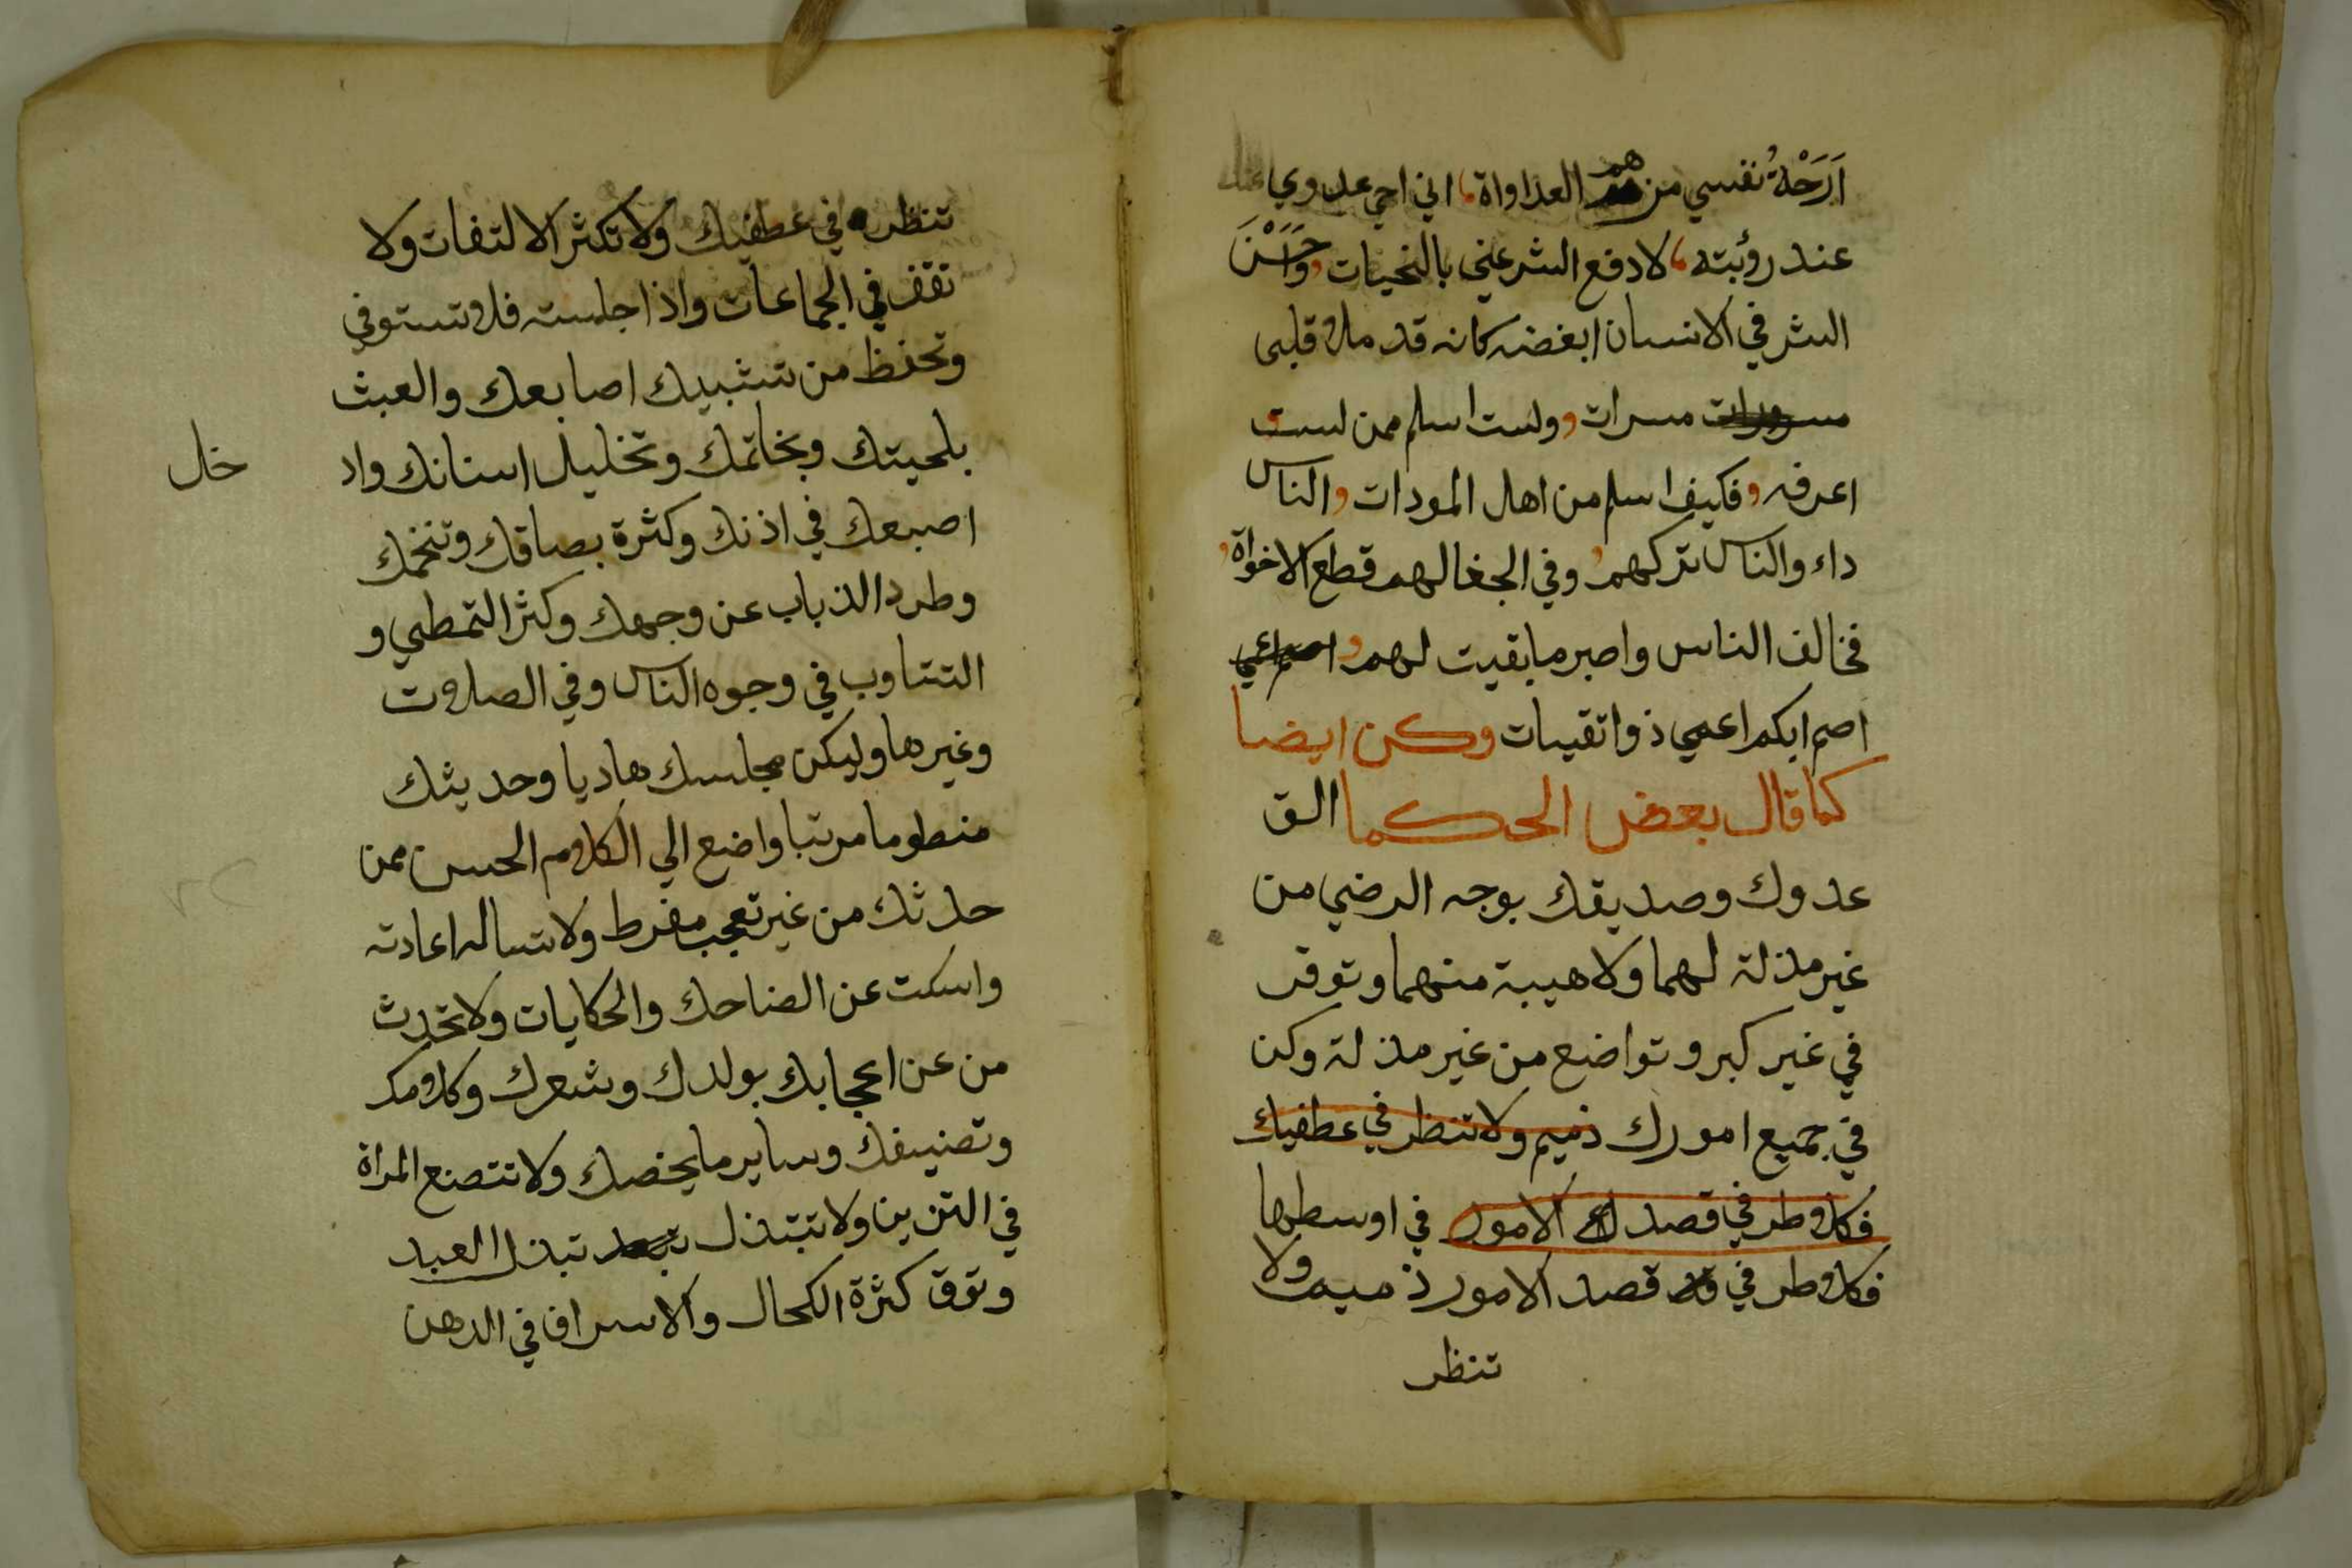 اَرَحْةُ نفسي من هم العداواة اني احي عدوي
عند رؤيته لادفع الشر عني بالتحيات
الشر في الانسان ابغضه كانه قد ملا قلبي
مسرات ولست اسلم ممن لست
اعرفه فكيف اسلم من اهل المودات والناس
داء والناس تركهم وفي الجغا لهم قطع الاخواة
فخالف الناس واصبر ما بقيت لهم
اصم ابكم اعمي ذو اتقيات وكن ايضا
كما قال بعض الحكما الق
عدوك وصديقك بوجه الرضي من
غير مذلة لهما ولا هيبة منهما وتوقر
في غير كبر و تواضع من غير مذلة وكن
في جميع امورك ذميم ولا تنظر في عطفيك
فكلا وطر في قصد الامور في اوسطها
فكلا وطر في قصد الامور ذميم ولا
تنظر
تنظر في عطفيك ولا تكثر الالتفات ولا
تقف في الجماعات واذا جلست فلا تستوفي
وتحفظ من تشبيك اصابعك والعبث
بلحيتك وبخاتمك وتخليل اسنانك واد
خال
اصبعك في اذنك وكثرة بصاقك وتنخمك
وطرد الذباب عن وجهك وكثر التمطي و
التتاوب في وجوه الناس وفي الصلات
وغيرها وليكن مجلسك هاديا وحديثك
منطوما مرتبا واضع الي الكلام الحسن ممن
حدثك من غير تعجب مفرط ولا تساله اعادته
واسكت عن الضاحك والحكايات ولا تحدث
من عن اعجابك بولدك وشعرك وكلامك
وتصنيفك وساير ما يخصك ولا تتصنع المراة
في التزين ولا تبتذل تبذل العبد
وتوق كثرة الكحال والاسراف في الدهن